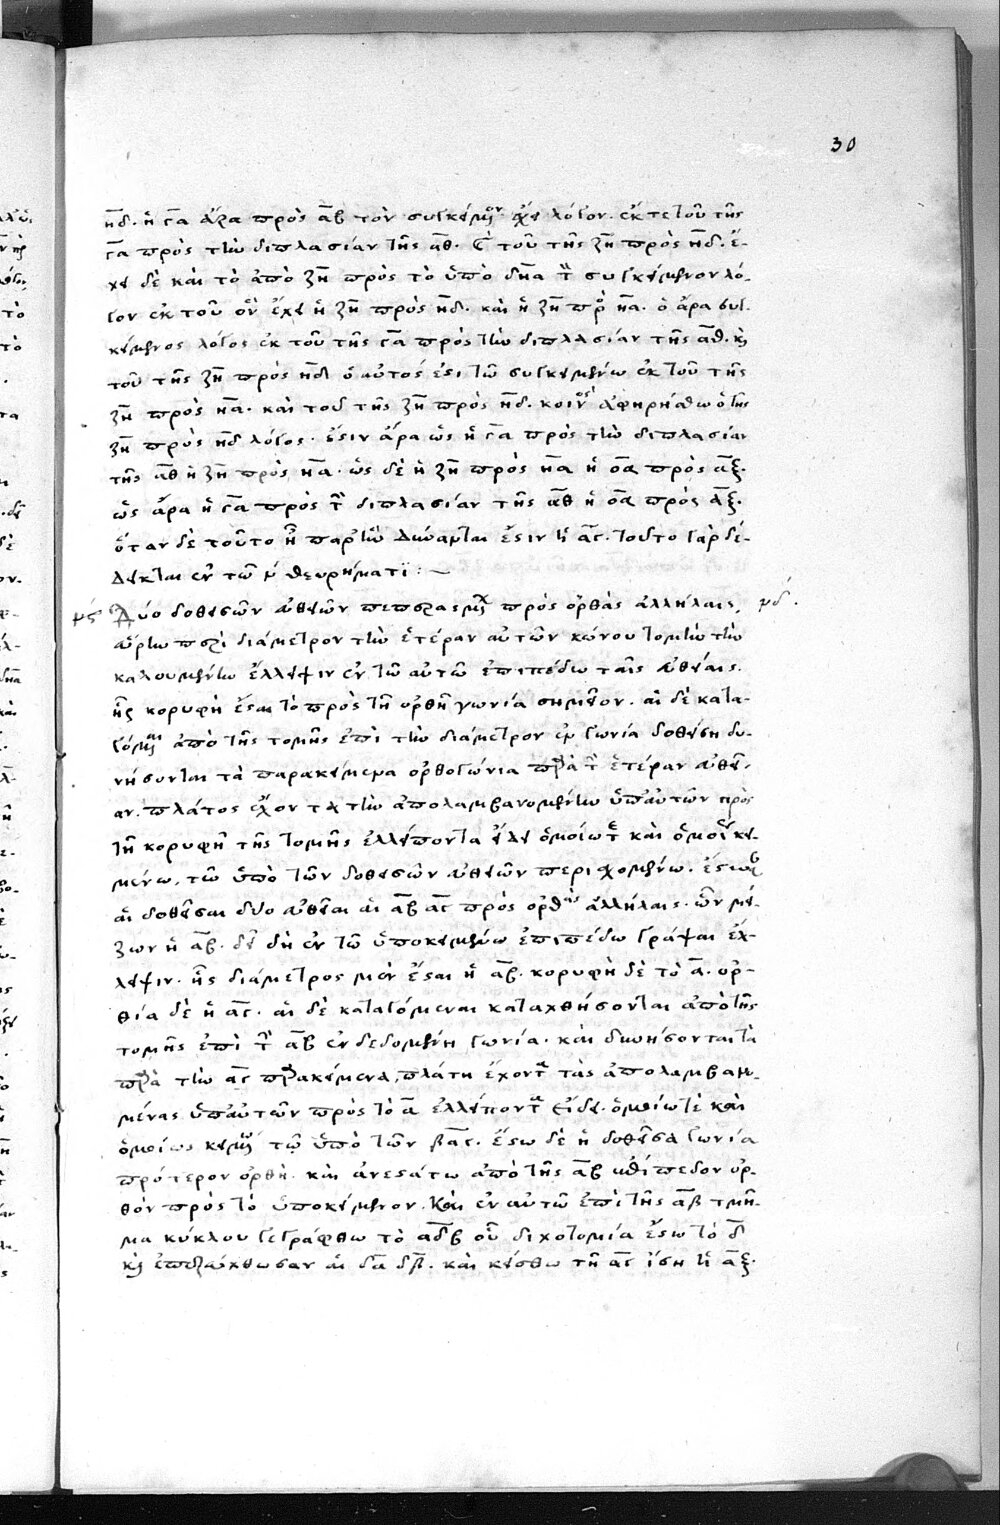 30
ηδ. ἡ γα ἄρα πρὸς αβ τὸν συγκείμενον ἔχει λόγον. ἔκ τε τοῦ τῆς
γα πρὸς τὴν διπλασίαν τῆς αθ. καὶ τοῦ τῆς ζη πρὸς ηδ. ἔ-
χει δὲ καὶ τὸ ἀπὸ ζη πρὸς τὸ ὑπὸ δηα τὸν συγκείμενον λό-
γον ἐκ τοῦ ὃν ἔχει ἡ ζη πρὸς ηδ. καὶ ἡ ζη πρὸς ηα. ὁ ἄρα συγ-
κείμενος λόγος ἐκ τοῦ τῆς γα πρὸς τὴν διπλασίαν τῆς αθ. καὶ
τοῦ τῆς ζη πρὸς ηδ ὁ αὐτός ἐστι τῷ συγκειμένῳ ἐκ τοῦ τῆς
ζη πρὸς ηα. καὶ τοῦ τῆς ζη πρὸς ηδ. κοινὸς ἀφῃρήσθω ὁ τῆς
ζη πρὸς ηδ λόγος. ἔστιν ἄρα ὡς ἡ γα πρὸς τὴν διπλασίαν
τῆς αθ ἡ ζη πρὸς ηα. ὡς δὲ ἡ ζη πρὸς ηα ἡ οα πρὸς αξ.
ὡς ἄρα ἡ γα πρὸς τὴν διπλασίαν τῆς αθ ἡ οα πρὸς αξ.
ὅταν δὲ τοῦτο ᾖ παρ' ἣν δύνανται ἐστιν ἡ αγ. τοῦτο γὰρ δέ-
δεικται ἐν τῷ ν θεωρήματι :~
μς Δύο δοθεισῶν εὐθειῶν πεπερασμένων πρὸς ὀρθὰς ἀλλήλαις, μδ.
εὑρεῖν περὶ διάμετρον τὴν ἑτέραν αὐτῶν κώνου τομὴν τὴν
καλουμένην ἔλλειψιν ἐν τῷ αὐτῷ ἐπιπέδῳ ταῖς εὐθείαις.
ἧς κορυφὴ ἔσται τὸ πρὸς τῇ ὀρθῇ γωνίᾳ σημεῖον. αἱ δὲ κατα-
γόμεναι ἀπὸ τῆς τομῆς ἐπὶ τὴν διάμετρον ἐν γωνίᾳ δοθείσῃ δυ-
νήσονται τὰ παρακείμενα ὀρθογώνια παρὰ τὴν ἑτέραν εὐθεῖ-
αν. πλάτος ἔχοντα τὴν ἀπολαμβανομένην ὑπ' αὐτῶν πρὸς
τῇ κορυφῇ τῆς τομῆς ἐλλείποντα εἴδει ὁμοίῳ τε καὶ ὁμοίως κει-
μένῳ, τῷ ὑπὸ τῶν δοθεισῶν εὐθειῶν περιεχομένῳ. ἔστωσαν
αἱ δοθεῖσαι δύο εὐθεῖαι αἱ αβ αγ πρὸς ὀρθὰς ἀλλήλαις. ὧν μεί-
ζων ἡ αβ. δεῖ δὴ ἐν τῷ ὑποκειμένῳ ἐπιπέδῳ γράψαι ἔλ-
λειψιν. ἧς διάμετρος μὲν ἔσται ἡ αβ. κορυφὴ δὲ τὸ α. ὀρ-
θία δὲ ἡ αγ. αἱ δὲ καταγόμεναι καταχθήσονται ἀπὸ τῆς
τομῆς ἐπὶ τὴν αβ ἐν δεδομένῃ γωνίᾳ. καὶ δυνήσονται τὰ
παρὰ τὴν αγ παρακείμενα, πλάτη ἔχοντα τὰς ἀπολαμβανο-
μένας ὑπ' αὐτῶν πρὸς τὸ α ἐλλείποντα εἴδει ὁμοίῳ τε καὶ
ὁμοίως κειμένῳ τῷ ὑπὸ τῶν βαγ. ἔστω δὲ ἡ δοθεῖσα γωνία
πρότερον ὀρθὴ. καὶ ἀνεστάτω ἀπὸ τῆς αβ ἐπίπεδον ὀρ-
θὸν πρὸς τὸ ὑποκείμενον. καὶ ἐν αὐτῷ ἐπὶ τῆς αβ τμῆ-
μα κύκλου γεγράφθω τὸ αδβ οὗ διχοτομία ἔστω τὸ δ
καὶ ἐπεζεύχθωσαν αἱ δα δβ. καὶ κείσθω τῇ αγ ἴση ἡ αξ.